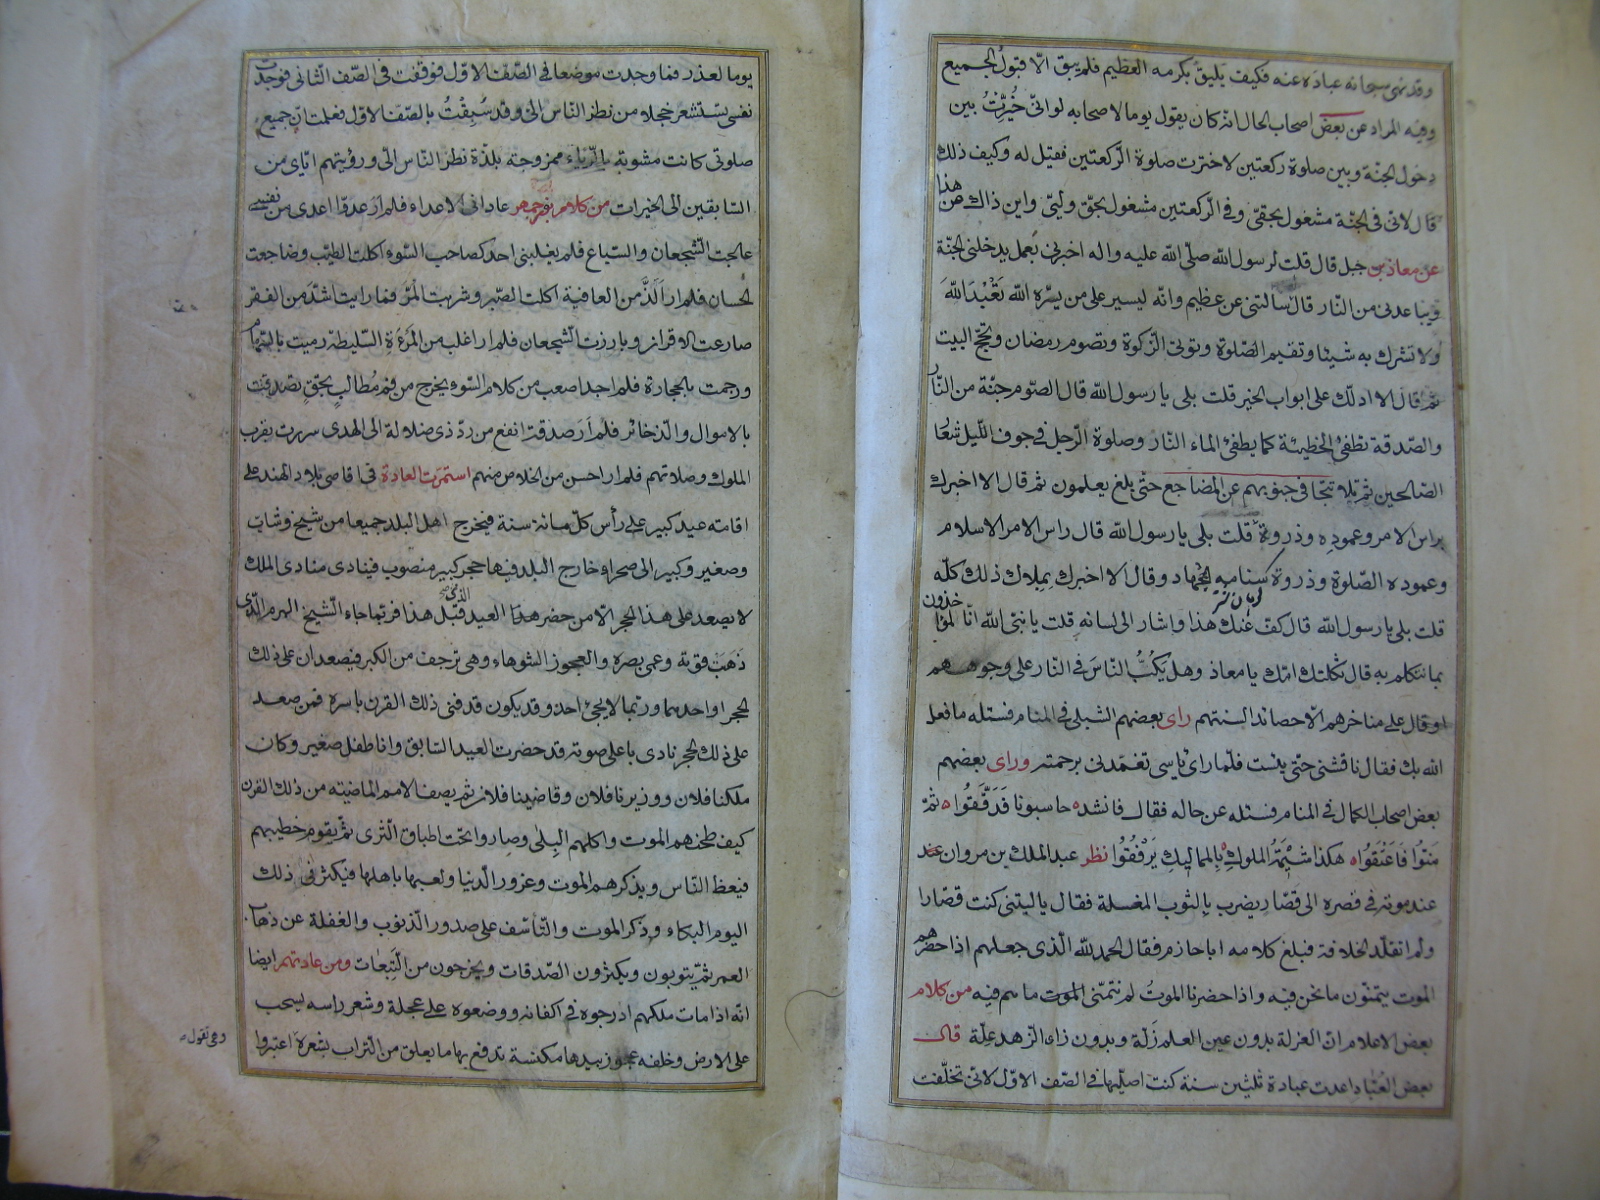 وقد نهى سبحانه عباده عنه فكيف يليق بكرمه العظيم فلم يبق الّا قبول الجميع
وفيه المراد عن بعض اصحاب الحال انّه كان يقول يوما لاصحابه لو انّى خُيِّرتُ بين
دخول الجنّة وبين صلوة ركعتين لاخترت صلوة الرّكعتين فقيل له وكيف ذلك
قال لانّى فى الجنّة مشغول بحقّى وفى الرّكعتين مشغول بحقّ وليّى واين ذاك من هذا
عن معاذ بن جبل قال قلت لرسول الله صلّى الله عليه واله اخبرنى بعمل يدخلنى الجنّة
ويباعدنى من النّار قال سالتنى عن عظيم وانّه ليسير على من يسّره الله تَعْبُدَ اللهَ
ولا تشرك به شيئا وتقيم الصّلوة وتوتى الزّكوة وتصوم رمضان وتحجّ البيت
ثمّ قال الا ادلّك على ابواب الخير قلت بلى يا رسول الله قال الصّوم جنّة من النّار
والصّدقة تطفئ الخطيئة كما يطفئ الماء النّار وصلوة الرّجل فى جوف اللّيل شعار
الصّالحين ثمّ تلا تتجافى جنوبهم عن المضاجع حتّى بلغ يعلمون ثمّ قال الا اخبرك
براس الامر وعموده وذروة قلت بلى يا رسول الله قال راس الامر الاسلام
وعموده الصّلوة وذروة سنامه الجهاد وقال الا اخبرك بملاك ذلك كلّه
قلت بلى يا رسول الله قال كفّ عنك هذا واشار الى لسانه قلت يا نبىّ الله انّا لمؤاخذون
بما نتكلم به قال ثكلتك امّك يا معاذ وهل يَكُبُّ النّاسَ فى النّار على وجوههم
او قال على مناخرهم الّا حصائد السنتهم راى بعضهم الشبلى فى المنام فسئله ما فعل
الله بك فقال ناقشنى حتّى يئست فلمّا راى ياسى تغمّدنى برحمته وراى بعضهم
بعض اصحاب الكمال فى المنام فسئله عن حاله فقال فانشده حاسبونا فَدَقَّقُوا ه ثمّ
مَنّوا فَاعْتَقُوا ه هكذا شيْمَةُ الملوك ه بالمماليكِ يَرْفُقُوا نظر عبد الملك بن مروان عند
عند موته فى قصره الى قصّار يضرب بالثوب المغسلة فقال يا ليتنى كنت قصّارا
ولم اتقلّد الخلافة فبلغ كلامه ابا حازم فقال الحمد لله الّذى جعلهم اذا حضرهم
الموت يتمنّون ما نحن فيه واذا حضرنا الموتُ لم نتمنّى الموت ما هم فيه من كلام
بعض الاعلام انّ العزلة بدون عين العلم زلّة وبدون زاى الزّهد علّة قال
بعض العُبّاد اعدت عبادة ثلثين سنة كنت اصلّيها فى الصّف الاوّل لانّى تخلّفت
يوما لعذر فما وجدت موضعا فى الصّف الاوّل فوقفت فى الصّف الثّانى فوجدت
نفسى تستشعر خجلا من نظر النّاس الىّ وقد سُبِقْتُ بالصّف الاوّل فعلمت انّ جميع
صلوتى كانت مشوبة بالرّياء ممزوجة بلذّة نظر النّاس الىّ ورؤيتهم ايّاى من
السّابقين الى الخيرات من كلام بزرجمهر عادانى الاعداء فلم ار عدوّا اعدى من نفسى
عالجت الشّجعان والسّباع فلم يغلبنى احد كصاحب السّوء اكلت الطيّب وضاجعت
الحسان فلم ار اَلَذّ من العافية اكلت الصّبر وشربت المرّ فما رايت اشدّ من الفقر
صارعت الاقران وبارزت الشّجعان فلم ار اغلب من المرءة السّليطة رميت بالسّهام
ورجمت بالحجارة فلم اجد اصعب من كلام السّوء يخرج من فم مُطالبٍ بحقّ تصدّقت
بالاموال والذّخائر فلم أر صدقة انفع من ردّ ذى ضلالة الى الهدى سررت بقرب
الملوك وصلاتهم فلم ار احسن من الخلاص منهم استمرّت العادة فى اقاصى بلاد الهند على
اقامة عيد كبير على رأس كلّ مائة سنة فيخرج اهل البلد جميعا من شيخ وشابّ
وصغير وكبير الى صحراء خارج البلد فيها حجر كبير منصوب فينادى منادى الملك
لا يصعد على هذا الحجر الّا من حضر هذا العيد الّذى قبل هذا فربّما جاء الشّيخ الهرم الّذى
ذهبَتْ قوّته وعمى بصره والعجوز الشوهاء وهى ترجف من الكبر فيصعدان على ذلك
الحجر او احدهما وربّما لا يجئ احد وقد يكون قد فنى ذلك القرن باسره فمن صعد
على ذلك الحجر نادى باعلى صوته قد حضرت العيد السّابق وانا طفل صغير وكان
ملكنا فلان ووزيرنا فلان وقاضينا فلان ثم يصف الامم الماضية من ذلك القرن
كيف طحنهم الموت واكلهم البِلى وصاروا تحت اطباق الثّرى ثمّ يقوم خطيبهم
فيعظ النّاس ويذكرهم الموت وغرور الدّنيا ولعبها باهلها فيكثر فى ذلك
اليوم البكاء وذكر الموت والتّأسّف على صدور الذّنوب والغفلة عن ذهاب
العمر ثمّ يتوبون ويكثرون الصّدقات ويخرجون من التَّبِعات ومن عادتهم ايضا
انّه اذا مات ملكهم ادرجوه فى اكفانه ووضعوه على عجلة وشعر راسه يسحب
على الارض وخلفه عجوز بيدها مكنسة تدفع بها ما يعلق من التّراب بشعره اعتبروا
وهى تقول